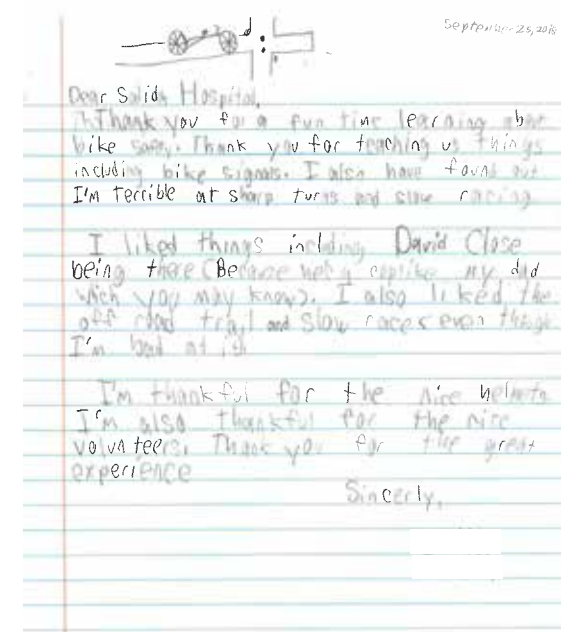 September 25, 2018
Dear Salida Hospital,
Thank you for a fun time learning about
bike safety. Thank you for teaching us things
including bike signals. I also have found out
I'm terrible at sharp turns and slow racing
I liked things including David Close
being there (Because he's a cop like my dad
wich you may know). I also liked the
off road trail and slow races even though
I'm bad at it.
I'm thankful for the nice helmets
I'm also thankful for the nice
volunteers. Thank you for the great
experience
Sincerly,